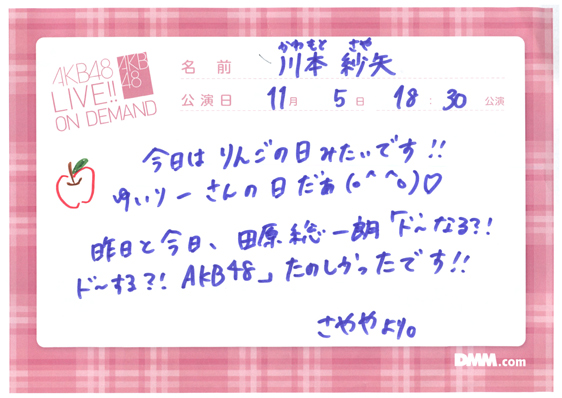 AKB48
LIVE!!
ON DEMAND
AKB
48
かわもと さや
名前 川本 紗矢
公演日 11月 5日 18:30 公演
今日は りんごの日 みたいです!!
ゆいりーさんの日だぁ(o^^o)♡
昨日と今日、田原総一朗「ド〜なる?!
ド〜する?! AKB48」たのしかったです!!
さややより。
DMM.com